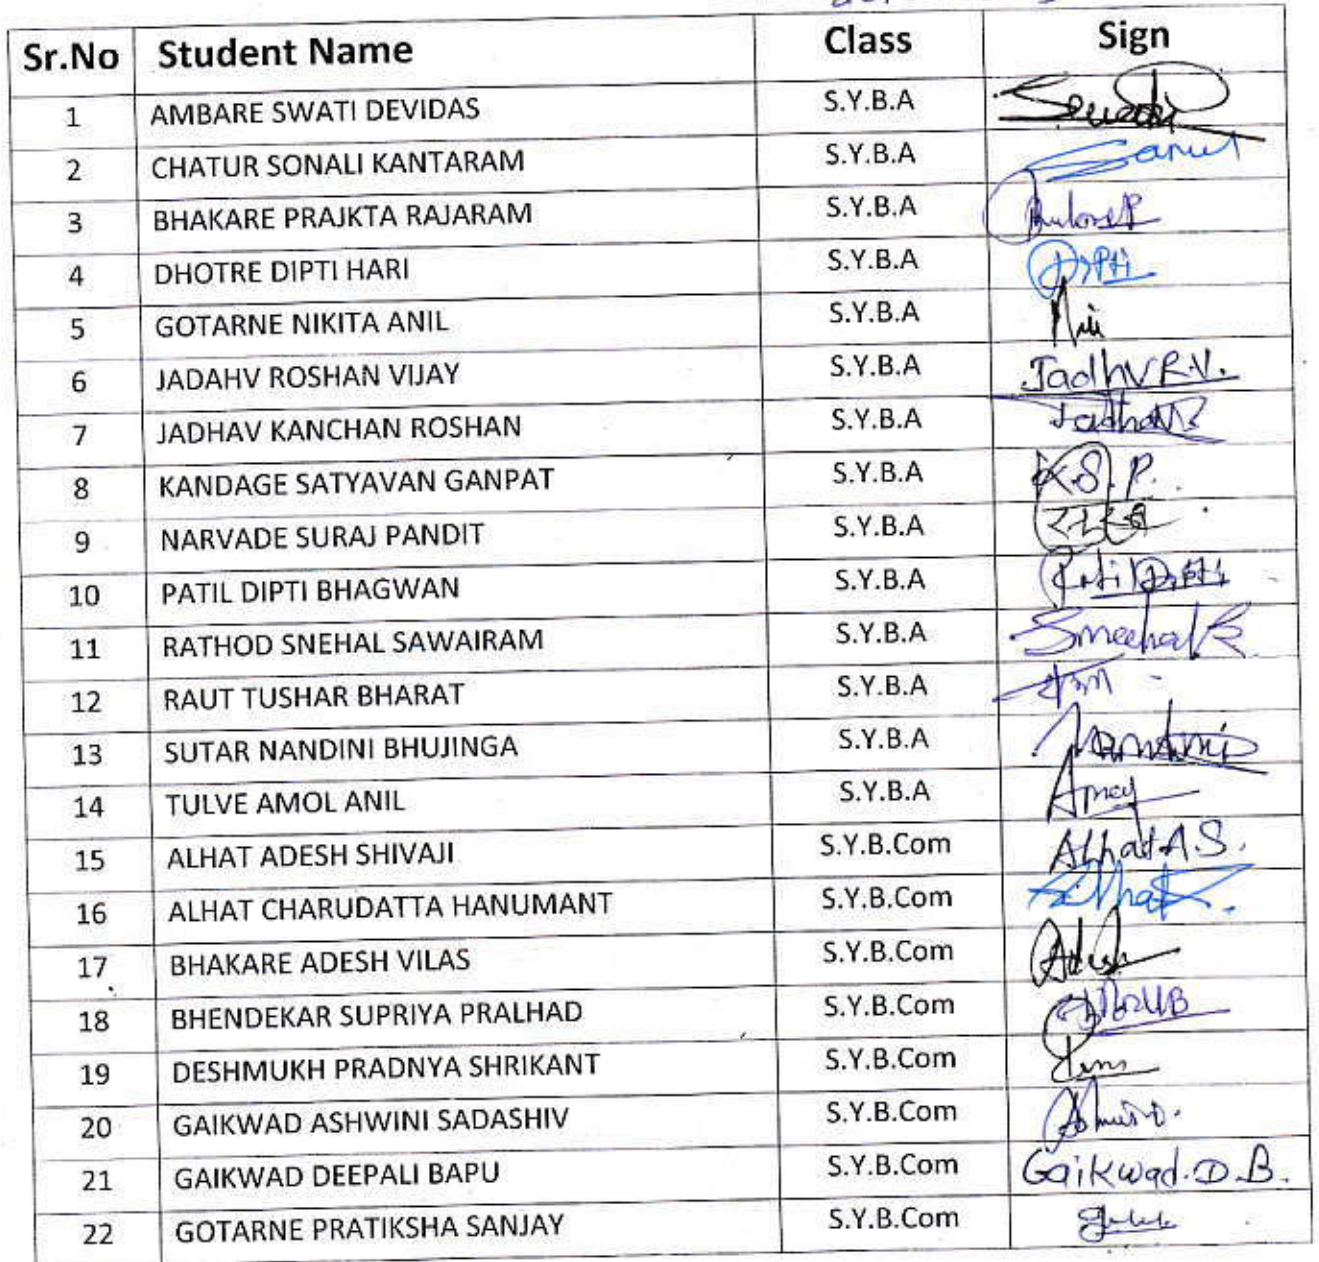 Sr.No Student Name Class Sign
1 AMBARE SWATI DEVIDAS S.Y.B.A Swati
2 CHATUR SONALI KANTARAM S.Y.B.A
3 BHAKARE PRAJKTA RAJARAM S.Y.B.A
4 DHOTRE DIPTI HARI S.Y.B.A Dipti
5 GOTARNE NIKITA ANIL S.Y.B.A
6 JADAHV ROSHAN VIJAY S.Y.B.A Jadhv R.V.
7 JADHAV KANCHAN ROSHAN S.Y.B.A
8 KANDAGE SATYAVAN GANPAT S.Y.B.A K.S.P.
9 NARVADE SURAJ PANDIT S.Y.B.A
10 PATIL DIPTI BHAGWAN S.Y.B.A Patil Dipti
11 RATHOD SNEHAL SAWAIRAM S.Y.B.A
12 RAUT TUSHAR BHARAT S.Y.B.A
13 SUTAR NANDINI BHUJINGA S.Y.B.A Nandini
14 TULVE AMOL ANIL S.Y.B.A
15 ALHAT ADESH SHIVAJI S.Y.B.Com Alhat A.S.
16 ALHAT CHARUDATTA HANUMANT S.Y.B.Com
17 BHAKARE ADESH VILAS S.Y.B.Com Adesh
18 BHENDEKAR SUPRIYA PRALHAD S.Y.B.Com
19 DESHMUKH PRADNYA SHRIKANT S.Y.B.Com
20 GAIKWAD ASHWINI SADASHIV S.Y.B.Com
21 GAIKWAD DEEPALI BAPU S.Y.B.Com Gaikwad.D.B.
22 GOTARNE PRATIKSHA SANJAY S.Y.B.Com